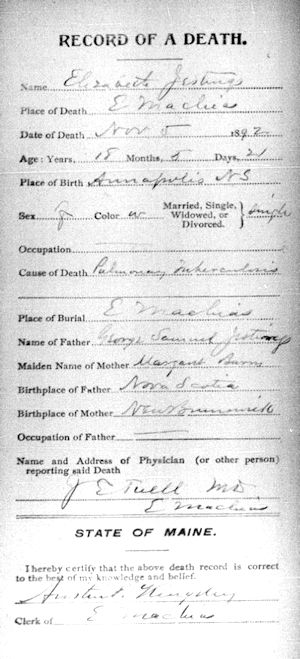 RECORD OF A DEATH.
Name Elizabeth Jestings
Place of Death E Machias
Date of Death Nov 5 1892
Age: Years, 18 Months, 5 Days, 21
Place of Birth Annapolis NS
Sex f Color w Married, Single, Widowed, or Divorced. } Single
Occupation
Cause of Death Pulmonary Tuberculosis
Place of Burial E Machias
Name of Father George Samuel Jestings
Maiden Name of Mother Margaret
Birthplace of Father Nova Scotia
Birthplace of Mother New Brunswick
Occupation of Father
Name and Address of Physician (or other person)
reporting said Death
J E Tuell MD
E Machias
STATE OF MAINE.
I hereby certify that the above death record is correct
to the best of my knowledge and belief.
Clerk of E Machias